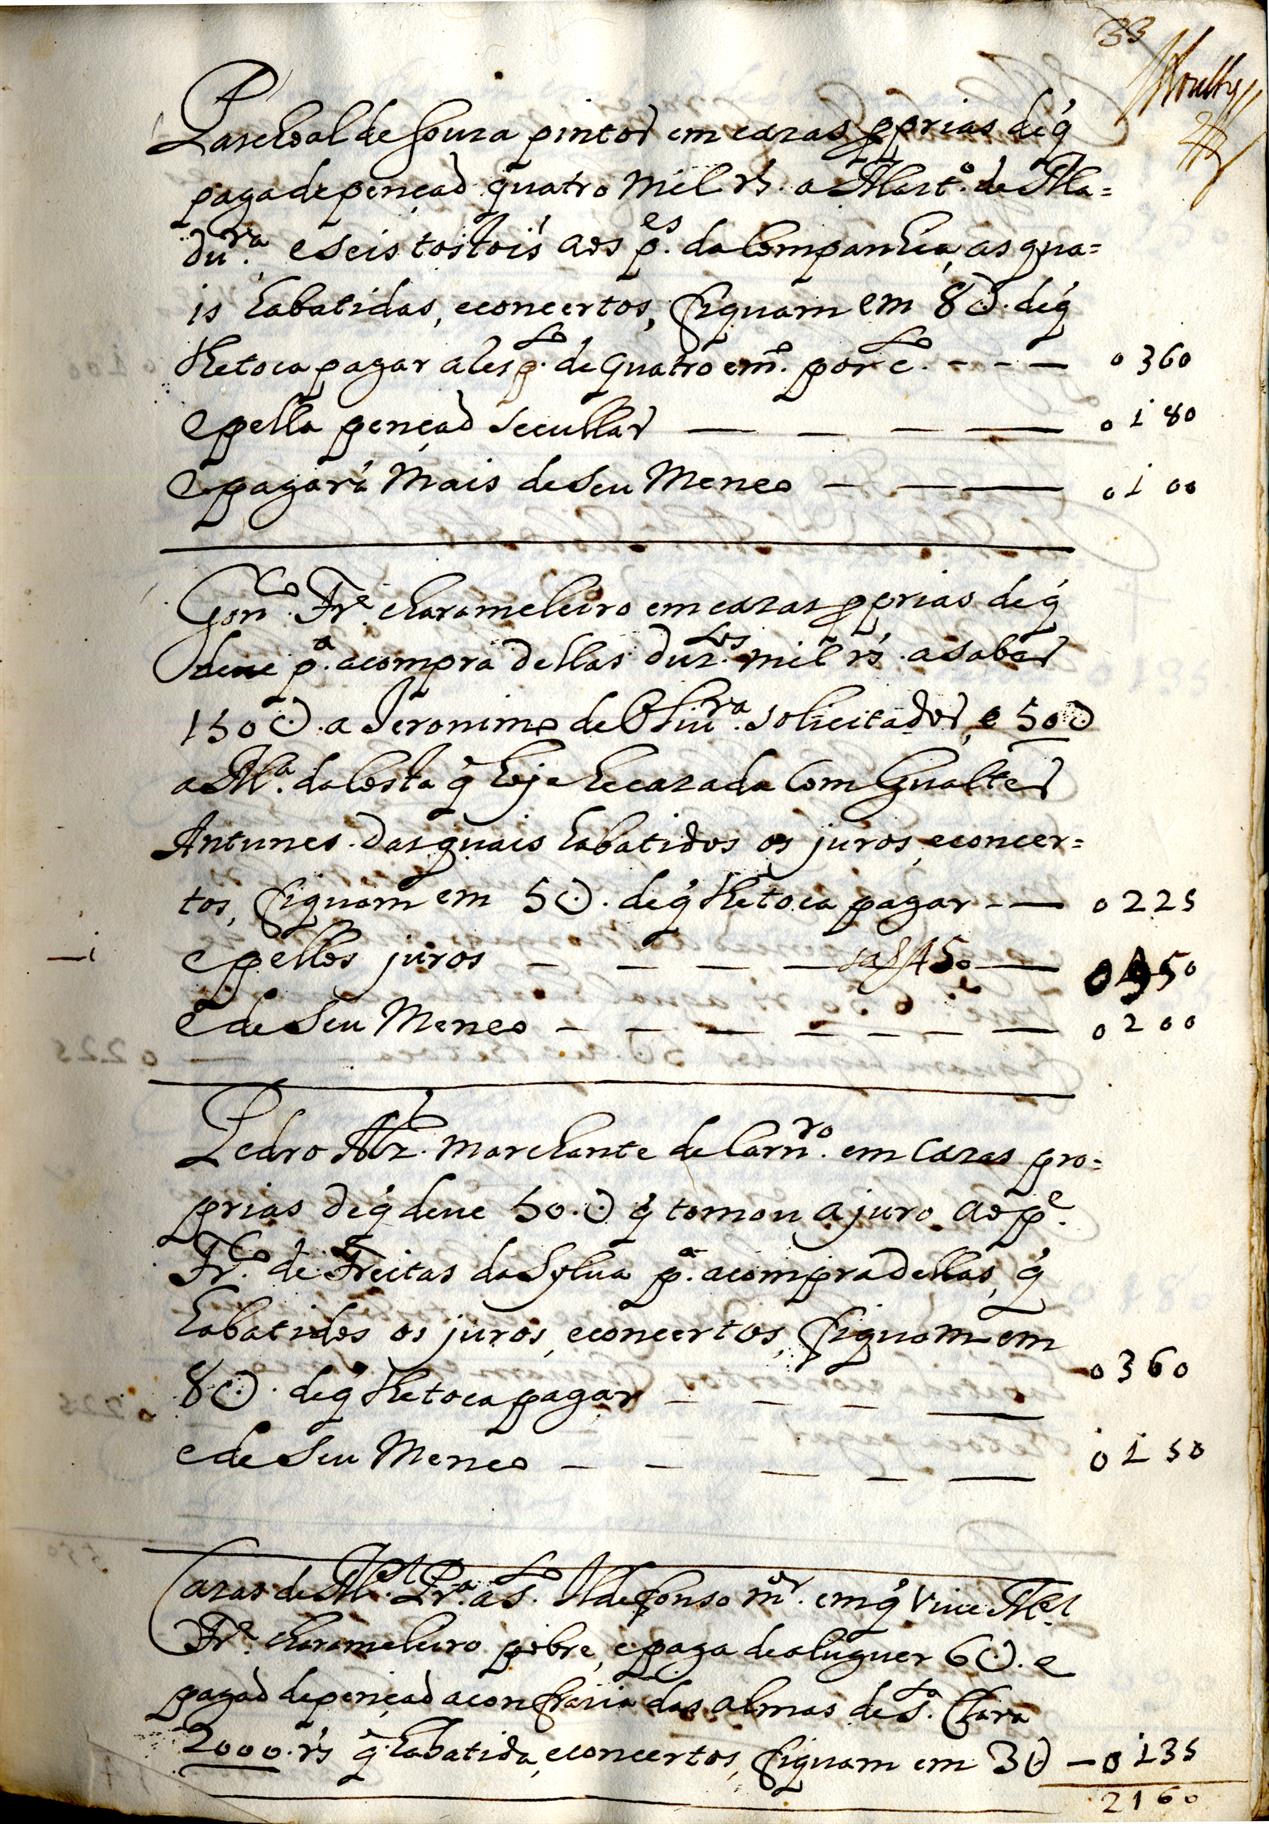 33
Paschoal de Souza pintor em cazas pprias de q̃
paga de pençaõ quatro mil rs. a Mart.º de Ma=
du.ra e seis tostois aos p.es da Companhia, as qua=
is habatidas, e concertos, fiquam em 8U. de q̃
lhe toca pagar a resp.to de quatro e m.º por c.to - - - 0360
e pella pençaõ secullar — — — — 0180
e pagará mais de seu Meneo — — — 0100
Gon.co Frȓ. charameleiro em cazas pprias de q̃
deve p.a a compra dellas duz.tos mil rs. a saber
150U. a Jeronimo de Oliu.ra solicitador, e 50U
a M.a da Costa q̃ hoje he cazada Com Gualter
Antunes. Das quais habatidos os juros, e concer=
tos, fiquam em 5U. de q̃ lhe toca pagar - — 0225
e pellos juros — — — — 450 — 0450
e de seu Meneo — — — — — — 0200
Pedro Alz. marchante de Carn.ro em cazas pro=
prias de q̃ deve 50.U q̃ tomou a juro ao p.e
Fr.co de Freitas da Sylua p.a a compra dellas, q̃
habatidos os juros, e concertos, fiquam em
8U. de q̃ lhe toca pagar — — — — 0360
e de seu Meneo — — — — — 0150
Cazas de M.el Pr.a a S.to Ildefonso m.or em q̃ viue M.el
Frȓ. charameleiro pobre, e paga de aluguer 6U. e
pagaõ de pençaõ a confraria das almas de S.ta Clara
2000. rs q̃ habatida, e concertos, fiquam em 3U — 0135
2160